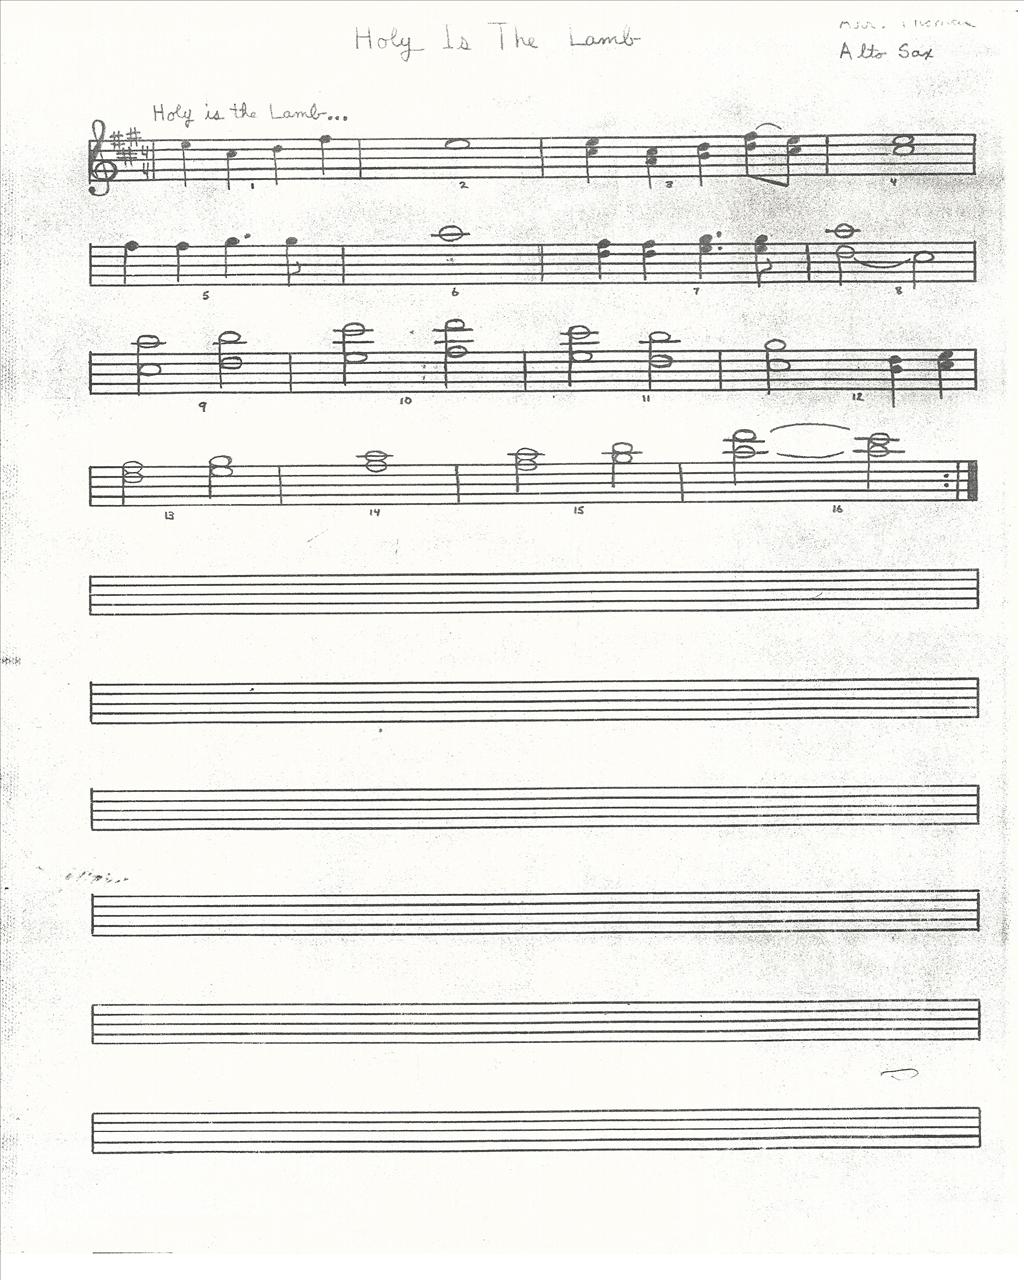 Holy Is The Lamb
Alto Sax
Holy is the Lamb...
4
4
1 2 3 4
5 6 7 8
9 10 11 12
13 14 15 16